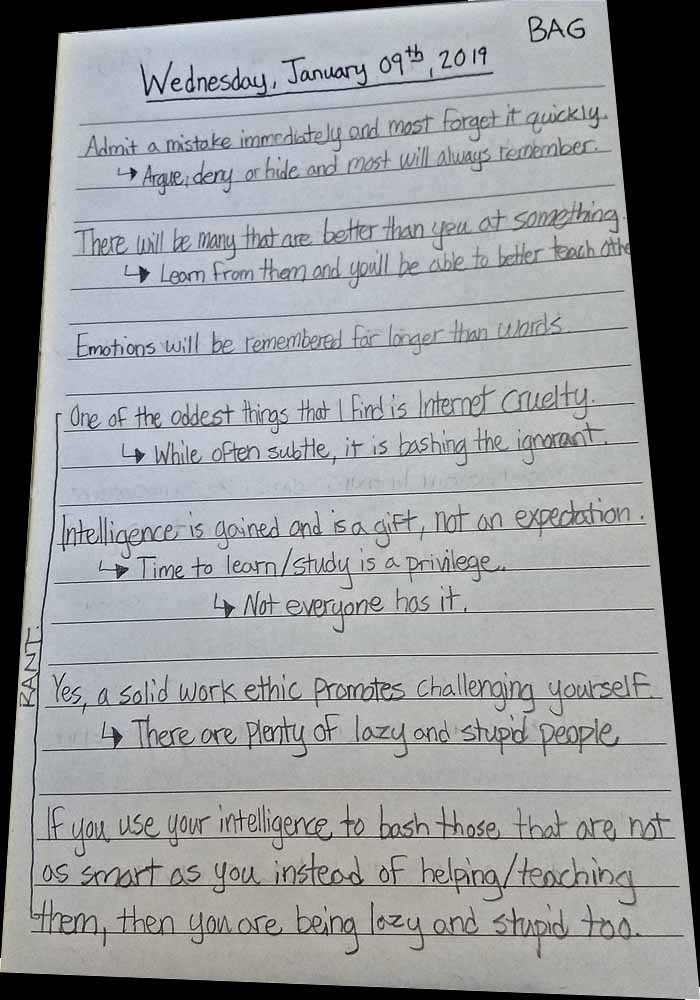 BAG
Wednesday, January 09th, 2019
Admit a mistake immediately and most forget it quickly.
↳ Argue, deny or hide and most will always remember.
There will be many that are better than you at something.
↳ Learn from them and you'll be able to better teach othe
Emotions will be remembered far longer than words.
One of the oddest things that I find is Internet Cruelty.
↳ While often subtle, it is bashing the ignorant.
Intelligence is gained and is a gift, not an expectation.
↳ Time to learn/study is a privilege.
↳ Not everyone has it.
RANT.
Yes, a solid work ethic promotes challenging yourself.
↳ There are plenty of lazy and stupid people
If you use your intelligence to bash those that are not
as smart as you instead of helping/teaching
them, then you are being lazy and stupid too.